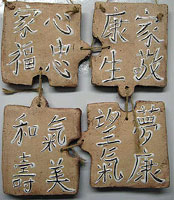 家心
福忠
康家
生
和氣
壽美
望夢
氣康